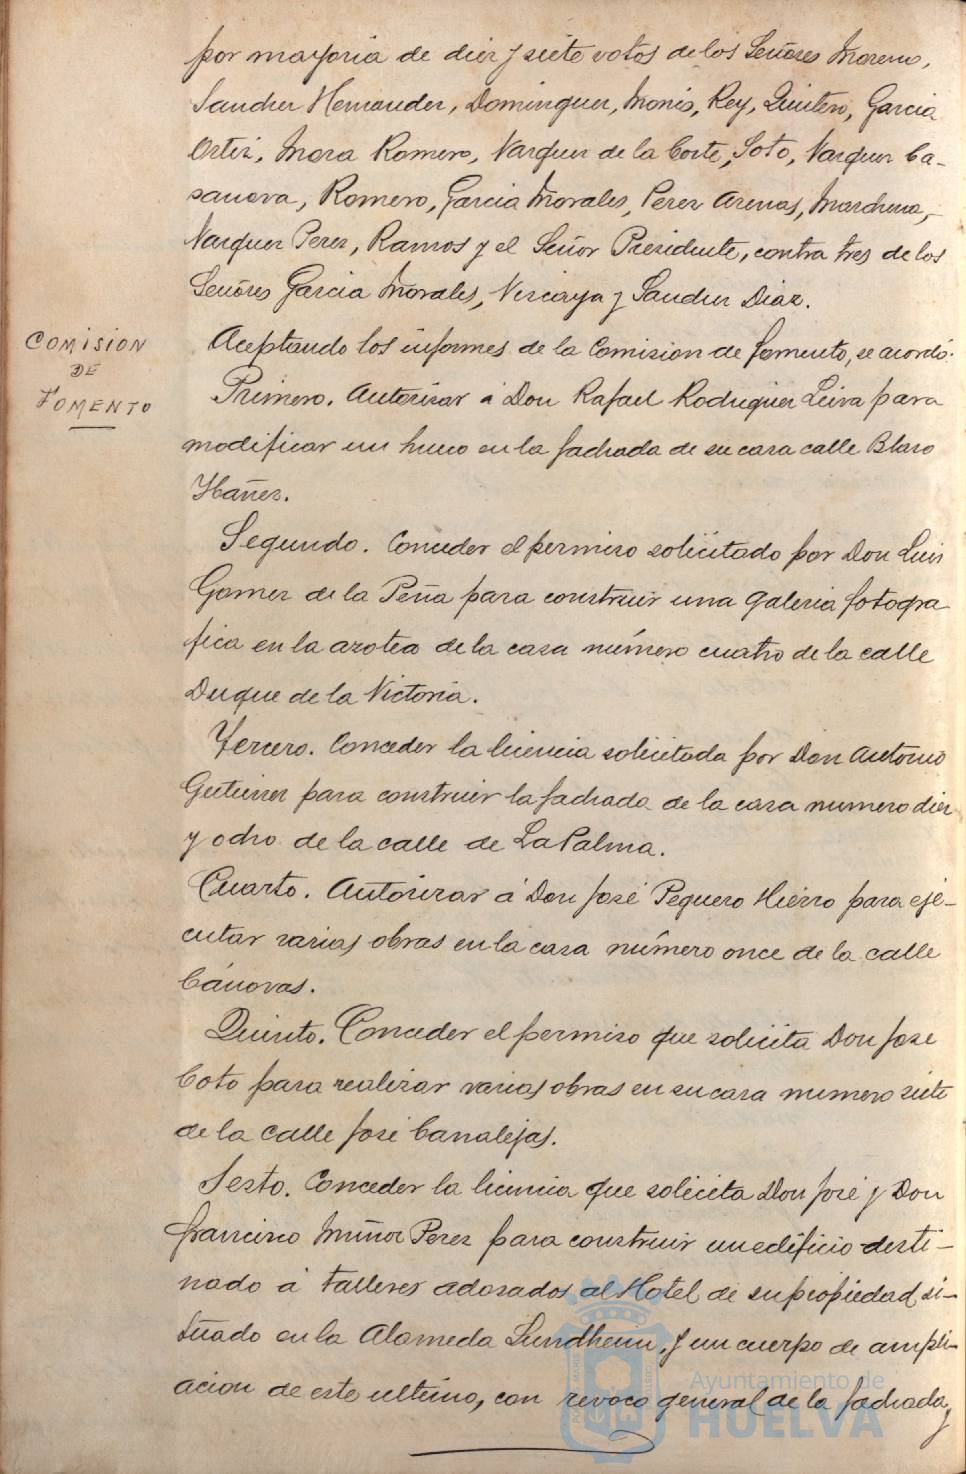 por mayoria de diez y siete votos de los Señores Moreno,
Sanchez Hernandez, Dominguez, Monis, Rey, Quintero, Garcia
Ortiz, Mora Romero, Vazquez de la Corte, Soto, Vazquez Ca-
sanova, Romero, Garcia Morales, Perez Arenas, Marchena,
Vazquez Perez, Ramos y el Señor Presidente, contra tres de los
Señores Garcia Morales, Vizcaya y Sanchez Diaz.
COMISION
DE
FOMENTO
Aceptando los informes de la Comision de fomento, se acordó:
Primero. Autorizar á Don Rafael Rodriguez Leiva para
modificar un hueco en la fachada de su casa calle Blasco
Ybañez.
Segundo. Conceder el permiso solicitado por Don Luis
Gomez de la Peña para construir una galeria fotogra
fica en la azotea de la casa número cuatro de la calle
Duque de la Victoria.
Tercero. Conceder la licencia solicitada por Don Antonio
Gutierrez para construir la fachada de la casa numero diez
y ocho de la calle de La Palma.
Cuarto. Autorizar á Don José Peguero Hierro para eje-
cutar varias obras en la casa número once de la calle
Cánovas.
Quinto. Conceder el permiso que solicita Don Jose
Coto para realizar varias obras en su casa numero siete
de la calle José Canalejas.
Sesto. Conceder la licencia que solicita Don José y Don
francisco Muñoz Perez para construir un edificio desti-
nado á talleres adosados al Hotel de su propiedad si-
tuado en la Alameda Sundheim, y un cuerpo de ampli-
acion de este ultimo, con revoco general de la fachada, y
Ayuntamiento de
HUELVA